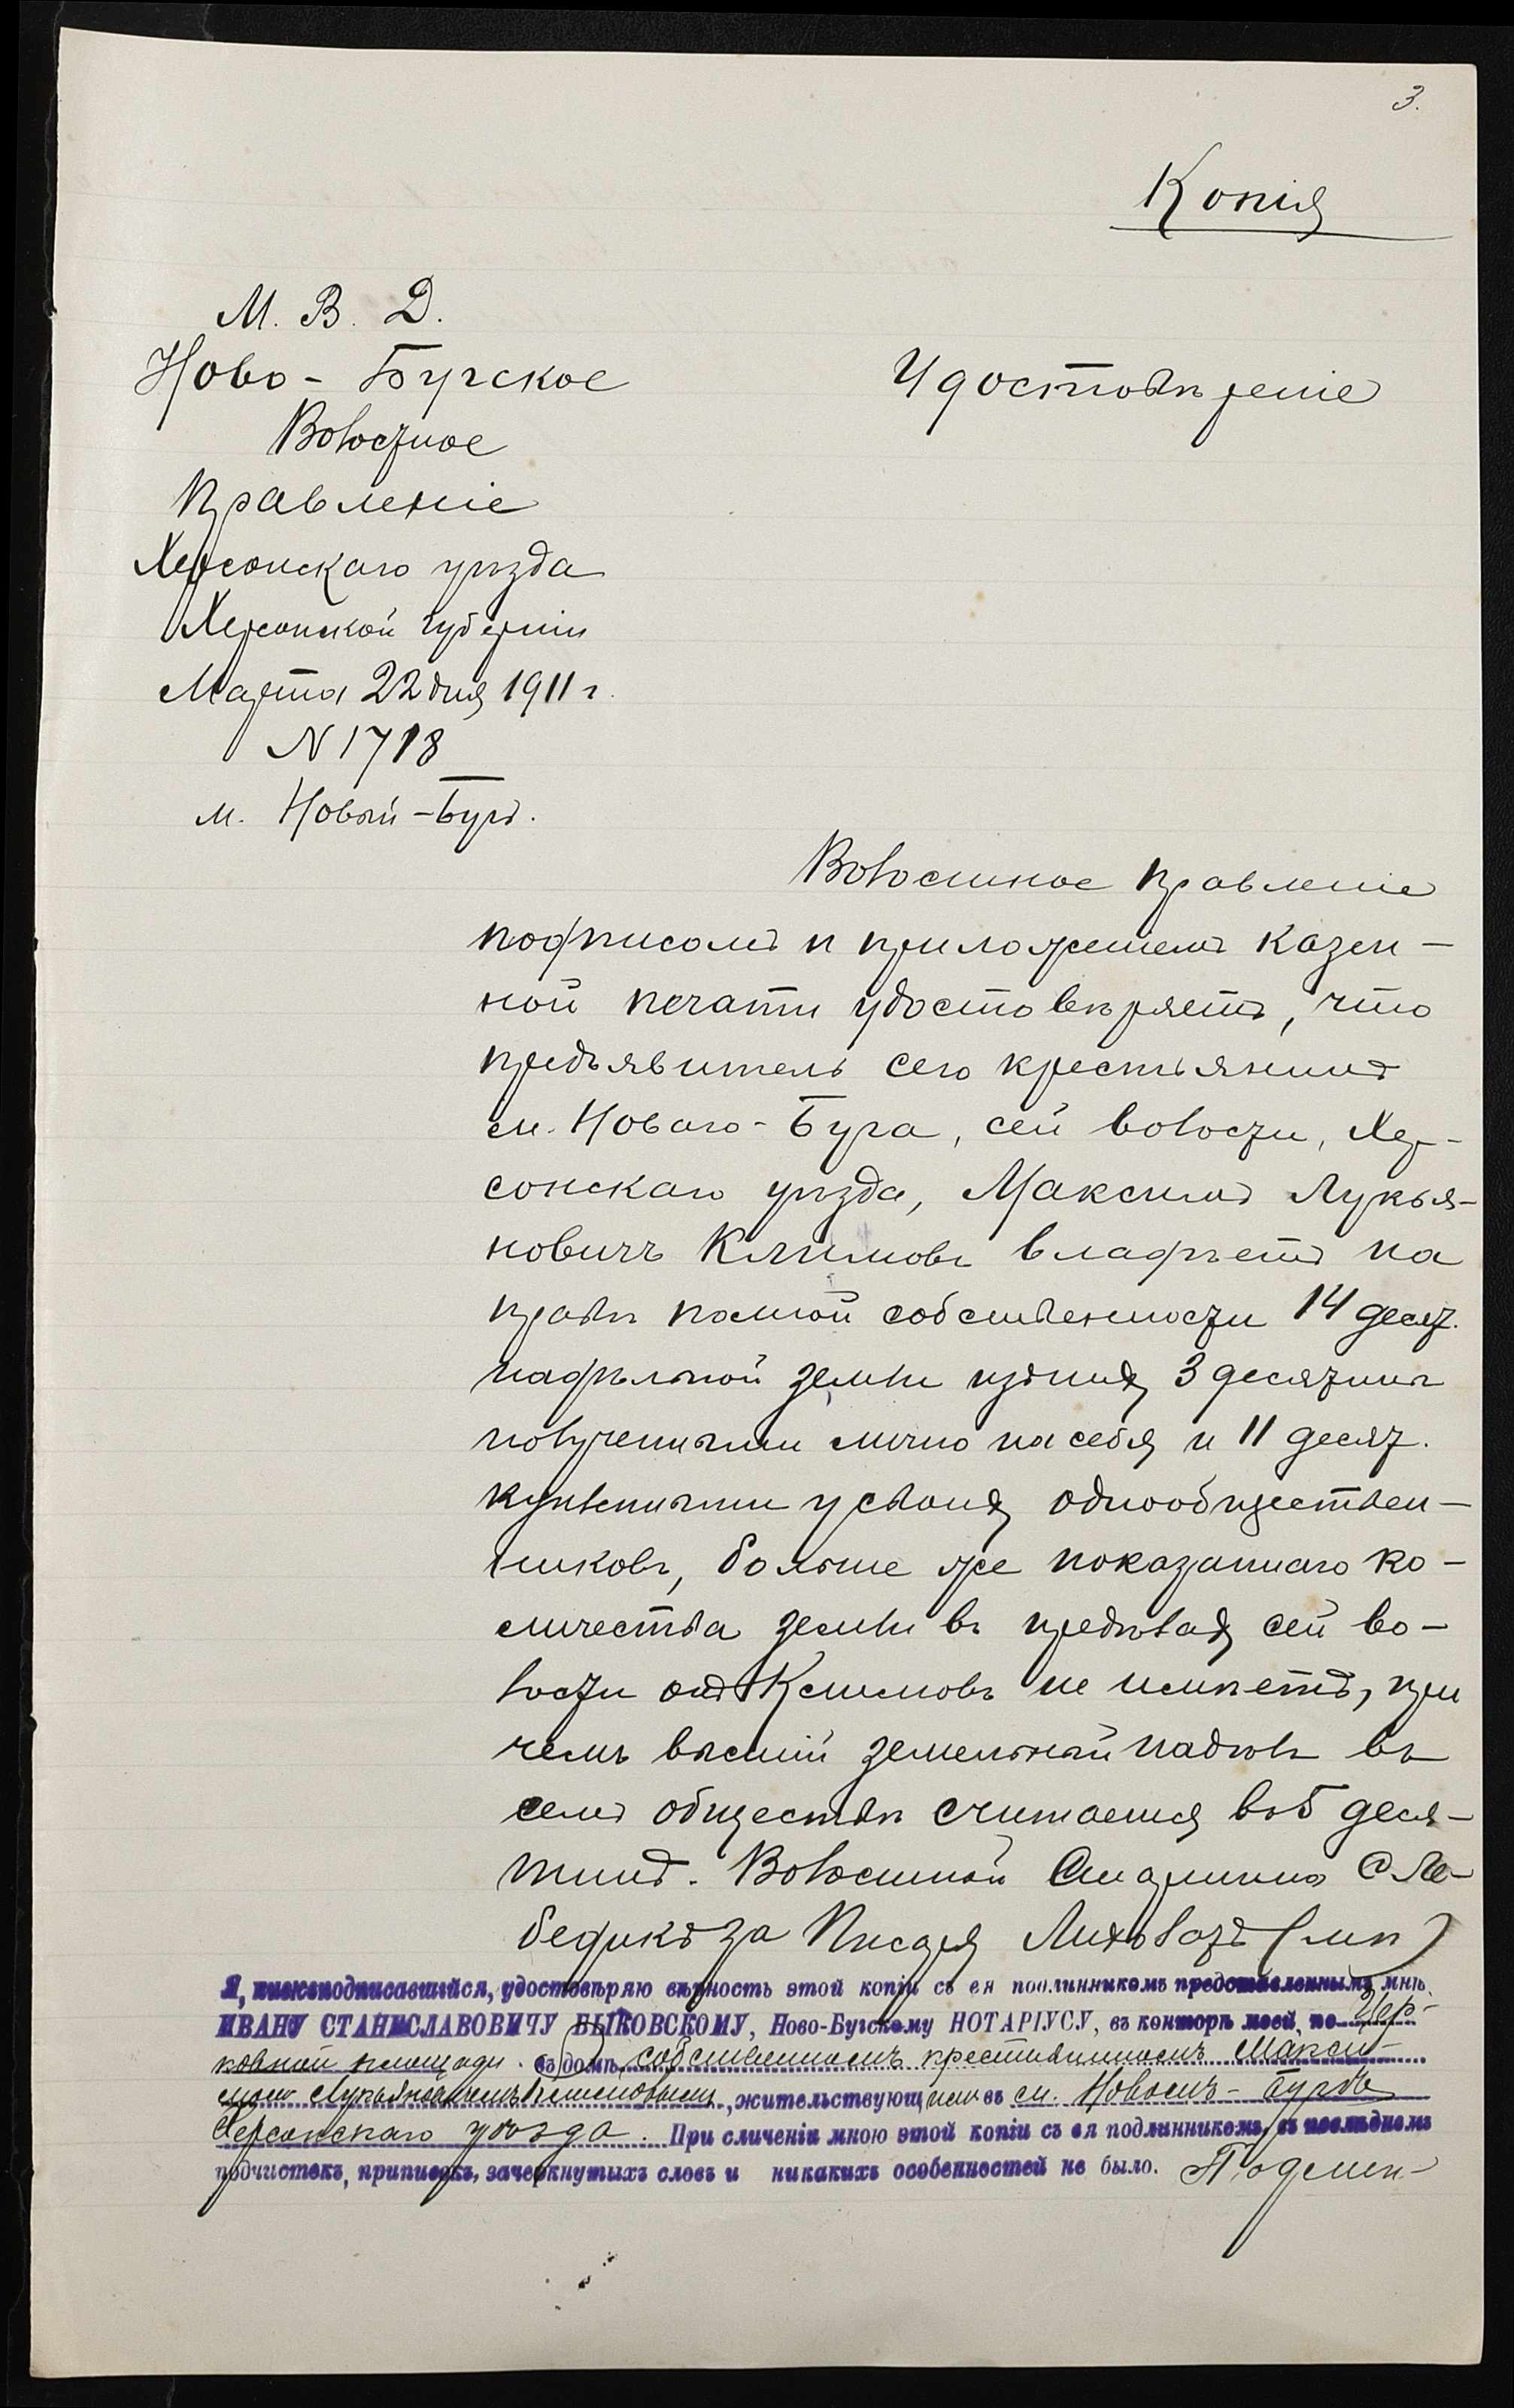 3.
Копія
М. В. Д.
Ново-Бугское
Волостное
Правленіе
Херсонскаго уѣзда
Херсонской губерніи
Марта 22 дня 1911 г.
N 1718
м. Новый-Бугъ.
Удостовѣреніе
Волостное Правленіе
подписомъ и приложеніемъ казен-
ной печати удостовѣряетъ, что
предъявитель сего крестьянинъ
м. Новаго-Буга, сей волости, Хер-
сонскаго уѣзда, Максимъ Лукья-
новичъ Климовъ владѣетъ на
правѣ полной собственности 14 десят.
надѣльной земли изъ нихъ 3 десятины
полученными лично на себя и 11 десят.
купленными у своихъ однообществен-
никовъ, больше же показаннаго ко-
личества земли въ предѣлахъ сей во-
лости онъ Климовъ не имѣетъ, при
чемъ высшій земельный надѣлъ въ
семъ обществѣ считается въ 5 деся-
тинъ. Волостной Старшина С. Ле-
бедикъ за Писаря (мп)
Я, нижеподписавшійся, удостовѣряю вѣрность этой копіи съ ея подлинникомъ представленнымъ мнѣ
ИВАНУ СТАНИСЛАВОВИЧУ БЫКОВСКОМУ, Ново-Бугскому НОТАРІУСУ, въ конторѣ моей, по Цер-
ковной площади въ домѣ собственномъ крестьяниномъ Макси-
момъ Лукьяновичемъ Климовымъ, жительствующимъ въ м. Новомъ-Бугѣ
Херсонскаго уѣзда. При сличеніи мною этой копіи съ ея подлинникомъ, въ послѣднемъ
подчистокъ, приписокъ, зачеркнутыхъ словъ и никакихъ особенностей не было. Подлин-